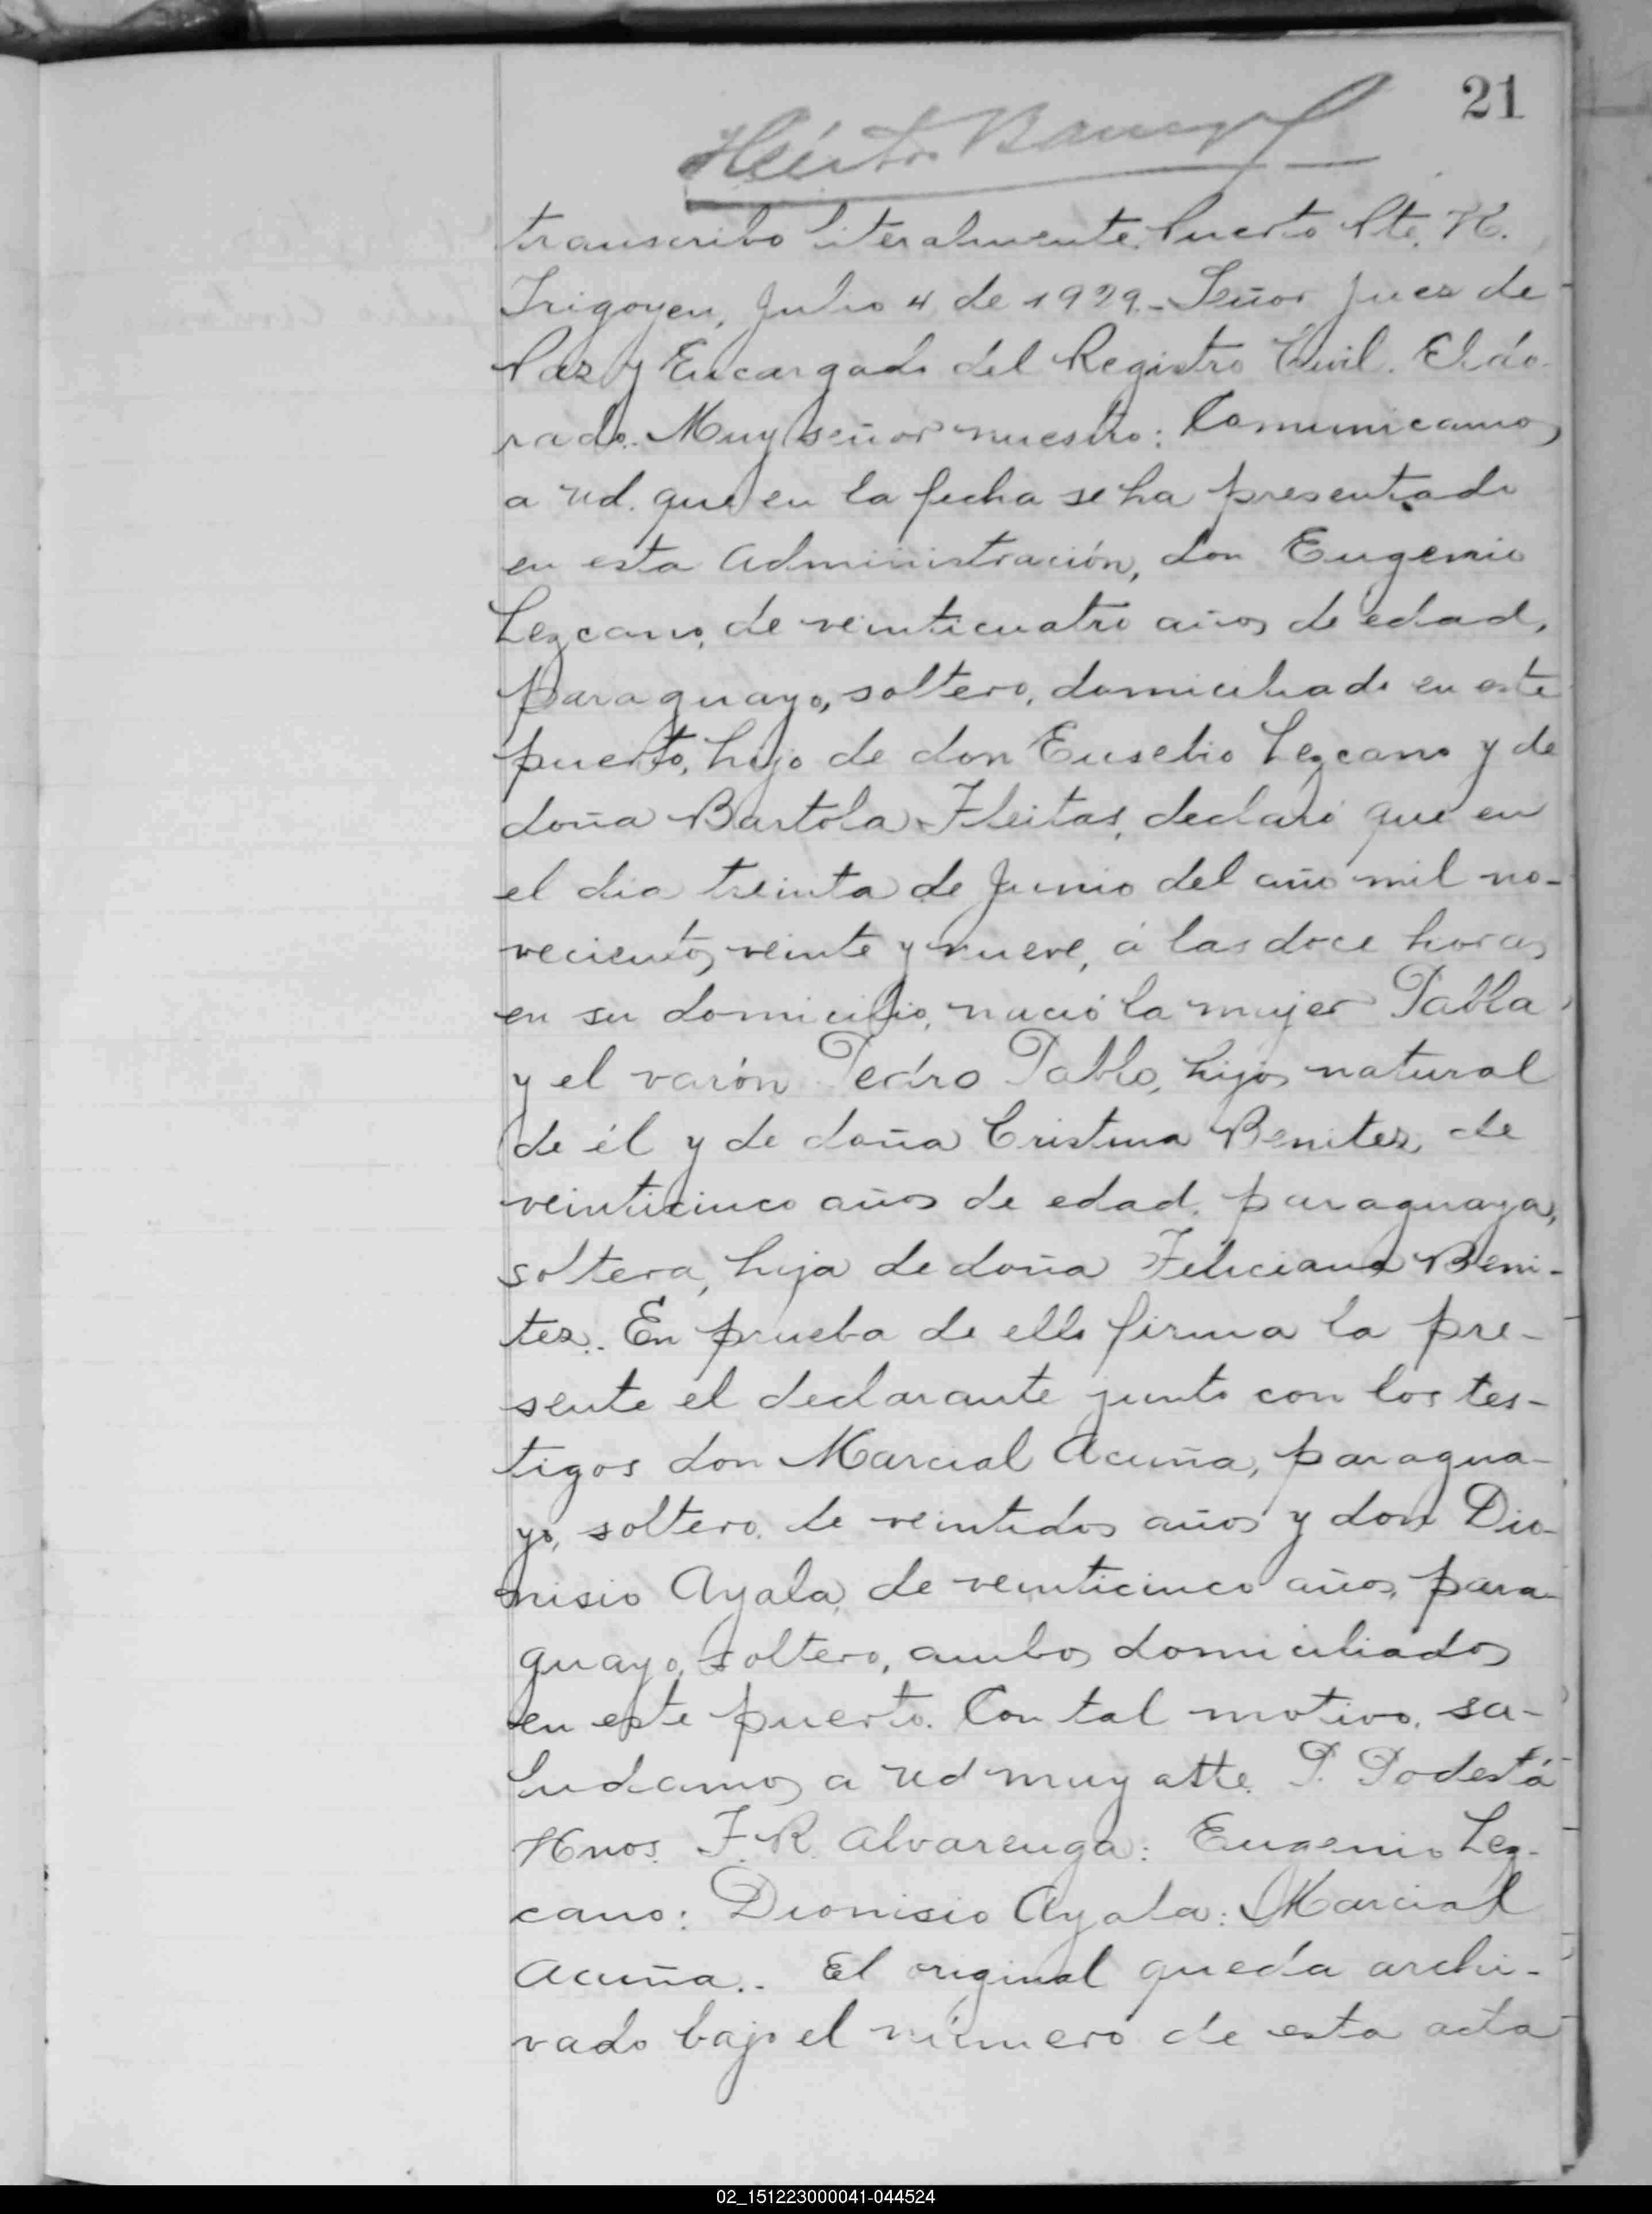 21
Héctor
transcribo literalmente. Puerto Pte. H.
Irigoyen, Julio 4 de 1929.- Señor Juez de
Paz y Encargado del Registro Civil. Eldo-
rado. Muy señor nuestro: Comunicamos
a Ud. que en la fecha se ha presentado
en esta Administración, don Eugenio
Lezcano, de veinticuatro años de edad,
paraguayo, soltero, domiciliado en este
puerto, hijo de don Eusebio Lezcano y de
doña Bartola Fleitas, declaró que en
el dia treinta de Junio del año mil no-
vecientos veinte y nueve, á las doce horas
en su domicilio, nació la mujer Pabla
y el varón Pedro Pablo, hijos natural
de él y de doña Cristina Benitez, de
veinticinco años de edad, paraguaya,
soltera, hija de doña Feliciana Beni-
tez.. En prueba de ello firma la pre-
sente el declarante junto con los tes-
tigos don Marcial Acuña, paragua-
yo, soltero, de veintidos años y don Dio-
nisio Ayala, de veinticinco años, para-
guayo, soltero, ambos domiciliados
en este puerto. Con tal motivo, sa-
ludamos a Ud muy atte. P. Podestá
Hnos. F. R. Alvarenga: Eugenio Lez-
cano: Dionisio Ayala: Marcial
Acuña.. El original queda archi-
vado bajo el número de esta acta
02_151223000041-044524